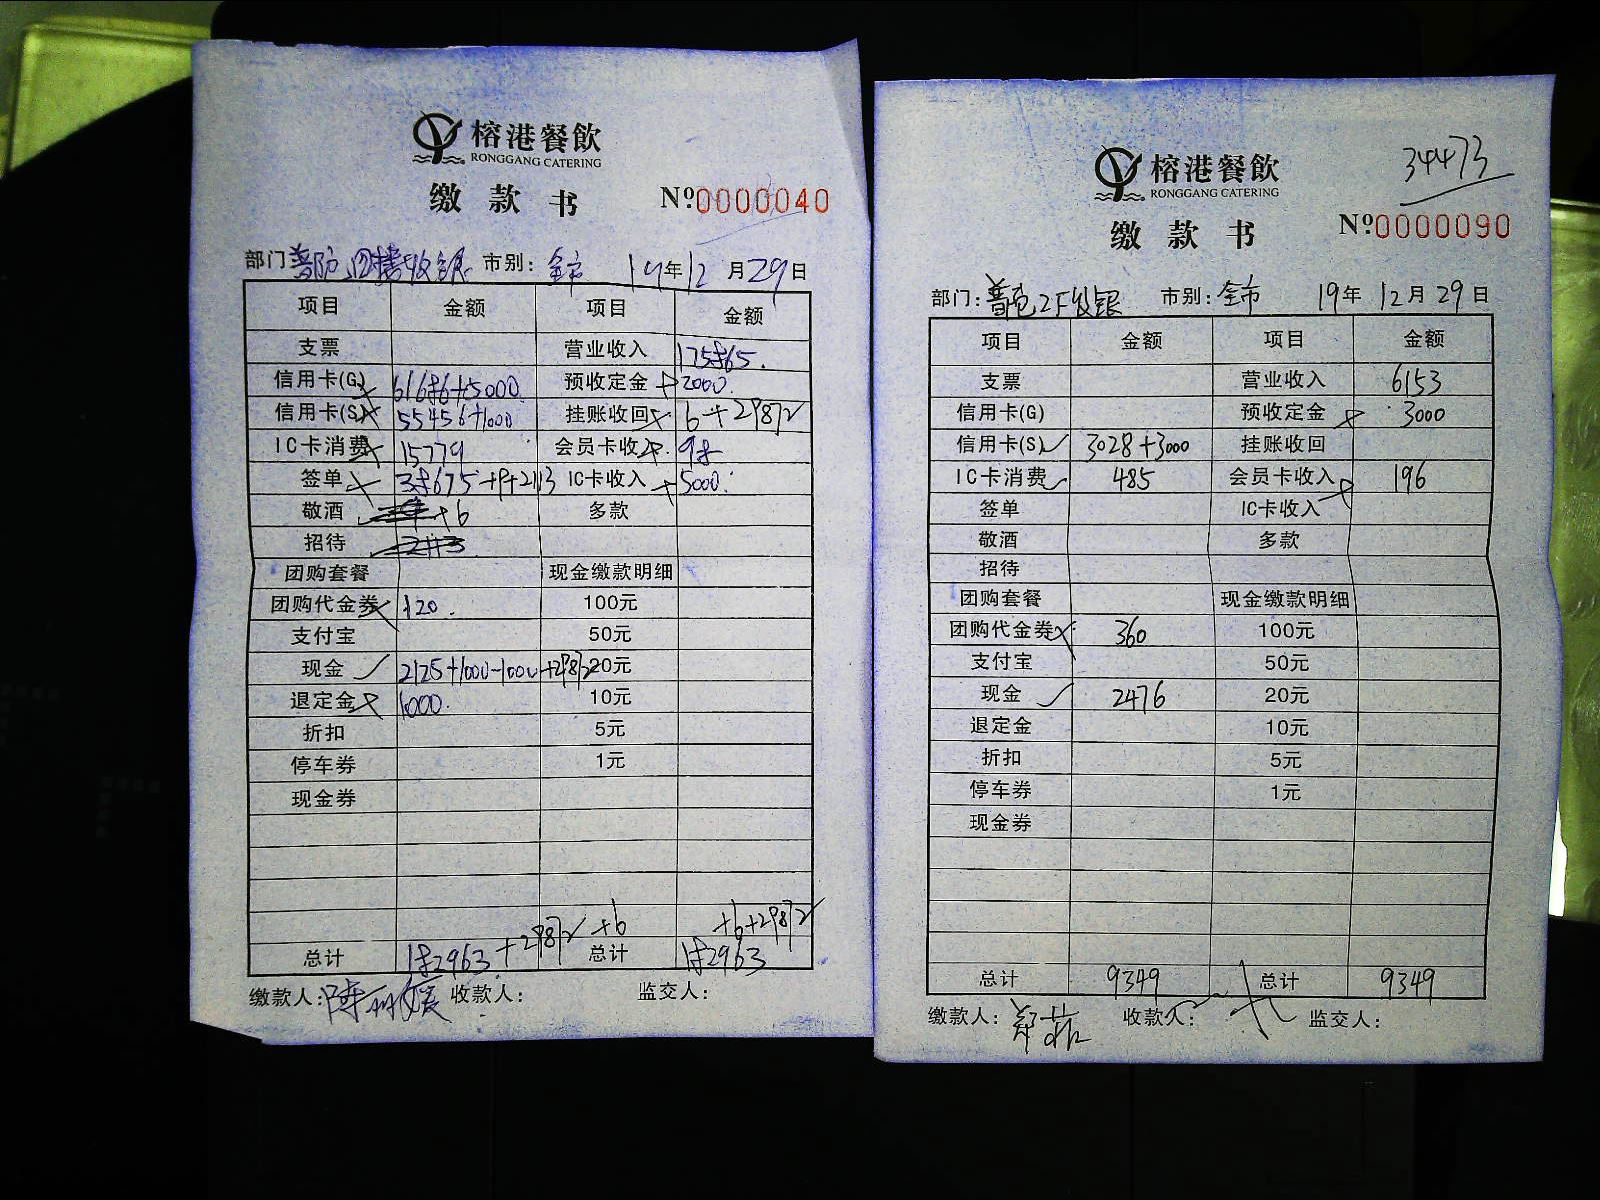 榕港餐飲
RONGGANG CATERING
缴款书
№0000040
部门 四楼收银 市别: 全市 19年12月29日
项目 金额 项目 金额
支票 营业收入 175865.
信用卡(G) 61686+5000 预收定金 2000.
信用卡(S) 55456+1000 挂账收回 6+29872
IC卡消费 15779 会员卡收入 98
签单 38675+9+2113 IC卡收入 5000.
敬酒 +6 多款
招待 2113
团购套餐 现金缴款明细
团购代金券 120. 100元
支付宝 50元
现金 2125+1000-1000+29872 20元
退定金 1000. 10元
折扣 5元
停车券 1元
现金券
+6+29872
总计 182963+29872+6 总计 182963
缴款人: 收款人: 监交人:
34473
榕港餐飲
RONGGANG CATERING
缴款书
№0000090
部门: 2F收银 市别: 全市 19年12月29日
项目 金额 项目 金额
支票 营业收入 6153
信用卡(G) 预收定金 3000
信用卡(S) 3028+3000 挂账收回
IC卡消费 485 会员卡收入 196
签单 IC卡收入
敬酒 多款
招待
团购套餐 现金缴款明细
团购代金券 360 100元
支付宝 50元
现金 2476 20元
退定金 10元
折扣 5元
停车券 1元
现金券
总计 9349 总计 9349
缴款人: 收款人: 监交人: